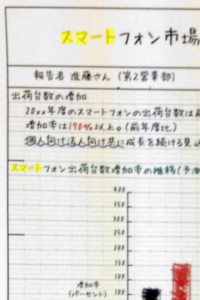 スマートフォン市場
報告者 佐藤さん (第2営業部)
出荷台数の増加
20xx年度のスマートフォンの出荷台数は前
増加率は170%以上。(前年度比)
個人向け法人向け共に成長を続ける見込
スマートフォン出荷台数増加率の推移(予測
400
350
300
250
200
増加率
(パーセント)
150
100